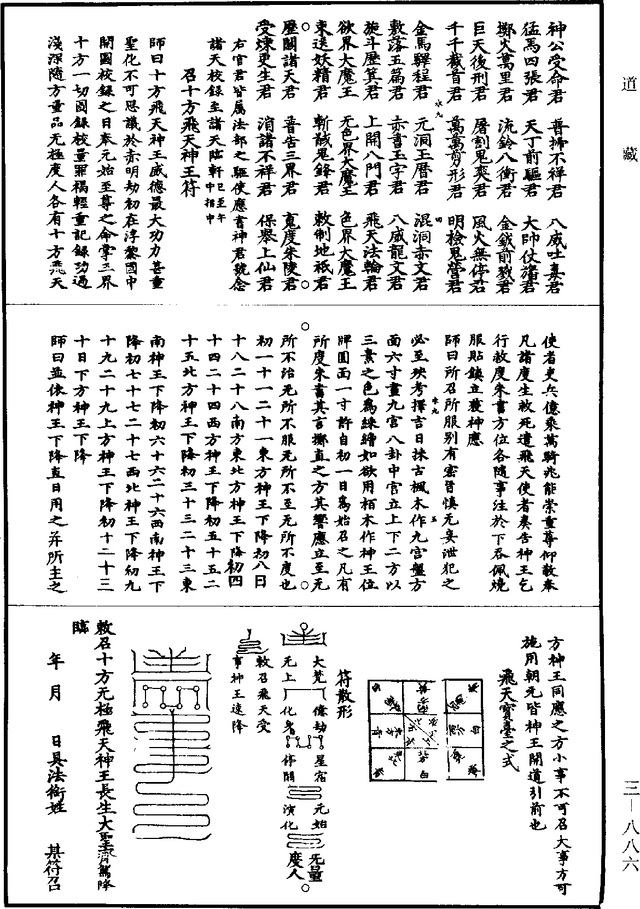 道藏
神公受命君　普掃不祥君　八威吐毒君
猛馬四張君　天丁前驅君　大帥仗旛君
擲火萬里君　流鈴八衝君　金鉞前戮君
巨天後刑君　屠割鬼爽君　風火無停君
千千截首君　萬萬剪形君　明檢鬼營君
金馬驛程君　元洞玉曆君　混洞赤文君
敷落五篇君　赤書玉字君　八威龍文君
旋斗歷箕君　上開八門君　飛天法輪君
欲界大魔王　无色界大魔王　色界大魔王
束送妖精君　斬馘鬼鋒君　敕制地祇君
歷關諸天君　普告三界君　寬度朱陵君
受煉更生君　消諸不祥君　保舉上仙君
右官君皆屬法部之驅使應書神君號念
諸天校錄至諸天臨軒
召十方飛天神王符
師曰十方飛天神王威德最大功力甚重
聖化不可思議於赤明劫初在浮黎國中
開圖校錄之日奉元始至尊之命掌三界
十方一切圖錄校量罪福輕重記錄功過
淺深隨方音品无極度人各有十方飛天
使者吏兵億乘萬騎兆能崇重尊仰敷奉
凡諸度生救死遣飛天使者奏告神王乞
行赦度朱書方位各隨事注於下吞佩燒
服貼鎮立獲神應
師曰所召所服別有密旨慎无妄泄犯之
必至殃考擇吉日採古楓木作九宮盤方
面六寸畫九宮八卦中宮立上下二方以
三素之色為綵繒如欲用栢木作神王位
牌圓面一寸許自初一日為始召之凡有
所度朱書其言擲直之方其響應立至无
所不治无所不服无所不至无所不度也
初一十一二十一東方神王下降初八日
十八二十八南方東北方神王下降初四
十四二十四西方神王下降初五十五二
十五北方神王下降初三十三二十三東
南神王下降初六十六二十六西南神王下
降初七十七二十七西北神王下降初九
十九二十九上方神王下降初十二十三
十日下方神王下降
師曰並依神王下降直日用之并所主之
方神王同應之方小事不可召大事方可
施用朝元皆神王開道引前也
飛天寶臺之式
符散形
大梵　偉劫　星宿　元始
元上　化身　停關　演化
无量度人
敕召飛天受
事神王速降
敕召十方无極飛天神王長生大聖
臨
年　月　日具法銜姓　某符召
三－八八六